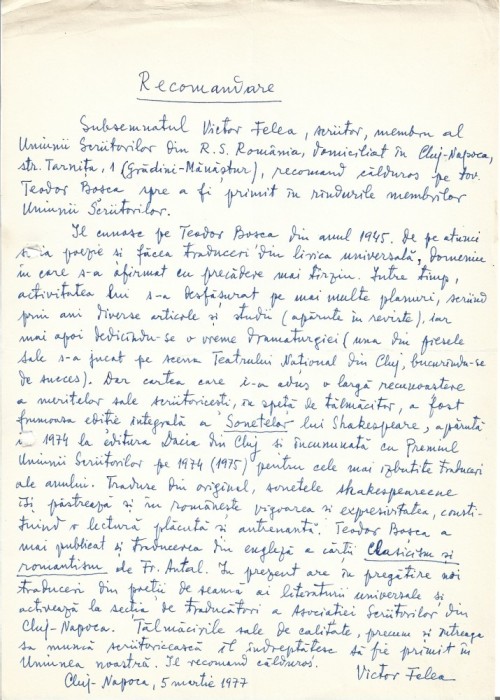 Recomandare
Subsemnatul Victor Felea, scriitor, membru al
Uniunii Scriitorilor din R.S. România, domiciliat în Cluj-Napoca,
str. Tarnița, 1 (Grădini-Mănăștur), recomand călduros pe tov.
Teodor Boșca spre a fi primit în rîndurile membrilor
Uniunii Scriitorilor.
Il cunosc pe Teodor Boșca din anul 1945. De pe atunci
scria poezie și făcea traduceri din lirica universală, domeniu
în care s-a afirmat cu precădere mai tîrziu. Intre timp,
activitatea lui s-a desfășurat pe mai multe planuri, scriind
prin ani diverse articole și studii (apărute în reviste), iar
mai apoi dedicîndu-se o vreme dramaturgiei (una din piesele
sale s-a jucat pe scena Teatrului Național din Cluj, bucurîndu-se
de succes). Dar cartea care i-a adus o largă recunoaștere
a meritelor sale scriitoricești, în speță de tălmăcitor, a fost
frumoasa ediție integrală a Sonetelor lui Shakespeare, apărută
în 1974 la editura Dacia din Cluj și încununată cu Premiul
Uniunii Scriitorilor pe 1974 (1975) pentru cele mai izbutite traduceri
ale anului. Traduse din original, sonetele shakespeareene
își păstrează și în românește vigoarea și expresivitatea, consti-
tuind o lectură plăcută și antrenantă. Teodor Boșca a
mai publicat și traducerea din engleză a cărții Clasicism și
romantism de Fr. Antal. In prezent are în pregătire noi
traduceri din poeții de seamă ai literaturii universale și
activează la secția de traducători a Asociației Scriitorilor din
Cluj-Napoca. Tălmăcirile sale de calitate, precum și întreaga
sa muncă scriitoricească îl îndreptățesc să fie primit în
Uniunea noastră. Il recomand călduros.
Victor Felea
Cluj-Napoca, 5 martie 1977